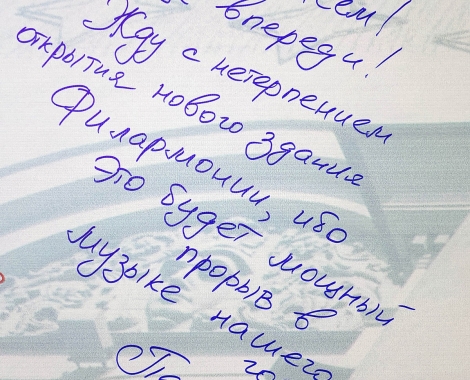 впереди!
Жду с нетерпением
открытия нового здания
Филармонии, ибо
это будет мощный
прорыв в
музыке нашего